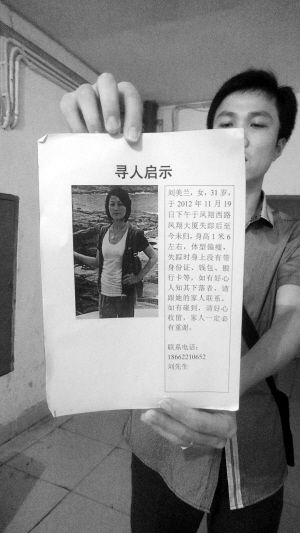 寻人启示
刘美兰，女，31岁，
于2012年11月19
日下午于凤翔西路
凤翔大厦失踪后至
今未归，身高1米6
左右，体型偏瘦，
失踪时身上没有带
身份证、钱包、银
行卡等。如有好心
人知其下落者，请
跟她的家人联系。
如有碰到，请好心
收留，家人一定必
有重谢。
联系电话：
18662210652
刘先生